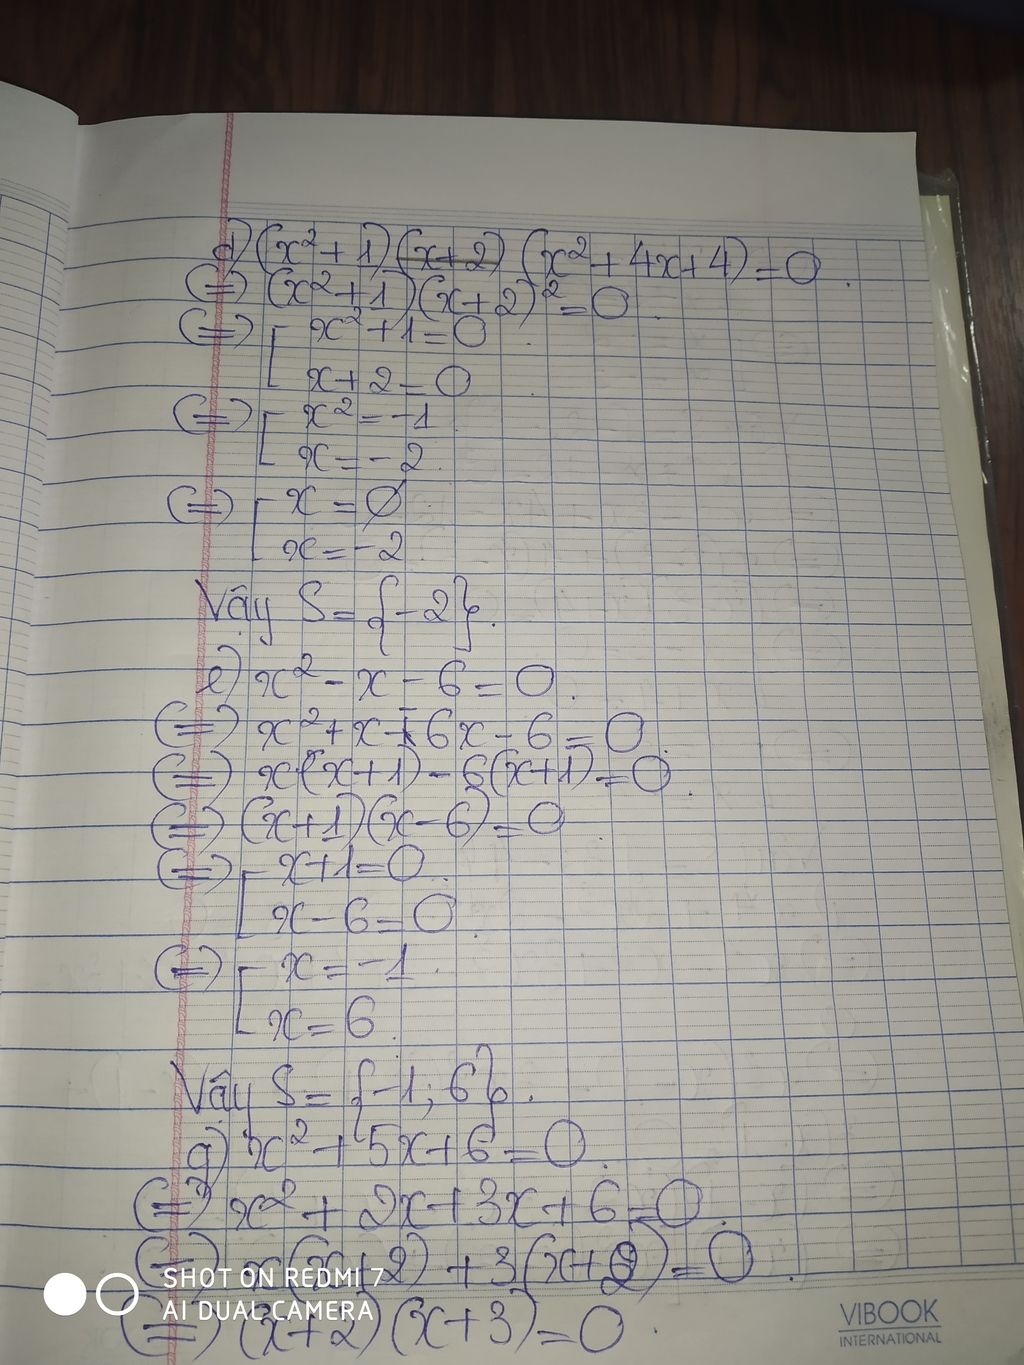 d) (x²+1) (x²+4x+4)=0.
(=) (x²+1)(x+2)²=0.
(=) [ x²+1=0.
x+2=0
(=) [ x²=-1.
x=-2.
(=) [ x=∅
x=-2.
Vậy S={-2}.
e) x²-x-6=0.
(=) x²+x-6x-6=0.
(=) x(x+1)-6(x+1)=0.
(=) (x+1)(x-6)=0.
(=) [ x+1=0.
x-6=0.
(=) [ x=-1.
x=6.
Vậy S={-1;6}.
g) x²+5x+6=0.
(=) x²+2x+3x+6=0.
(=) x(x+2)+3(x+2)=0.
(=) (x+2)(x+3)=0.
SHOT ON REDMI 7
AI DUAL CAMERA
VIBOOK
INTERNATIONAL